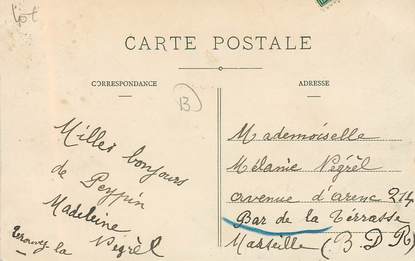 Lot
CARTE POSTALE
CORRESPONDANCE
ADRESSE
13
Milles bonjours
de Peypin
Madeleine
Négrel
Trouvez la
Mademoiselle
Mélanie Négrel
avenue d'arenc 214
Bar de la Térrasse
Marseille (B D R)